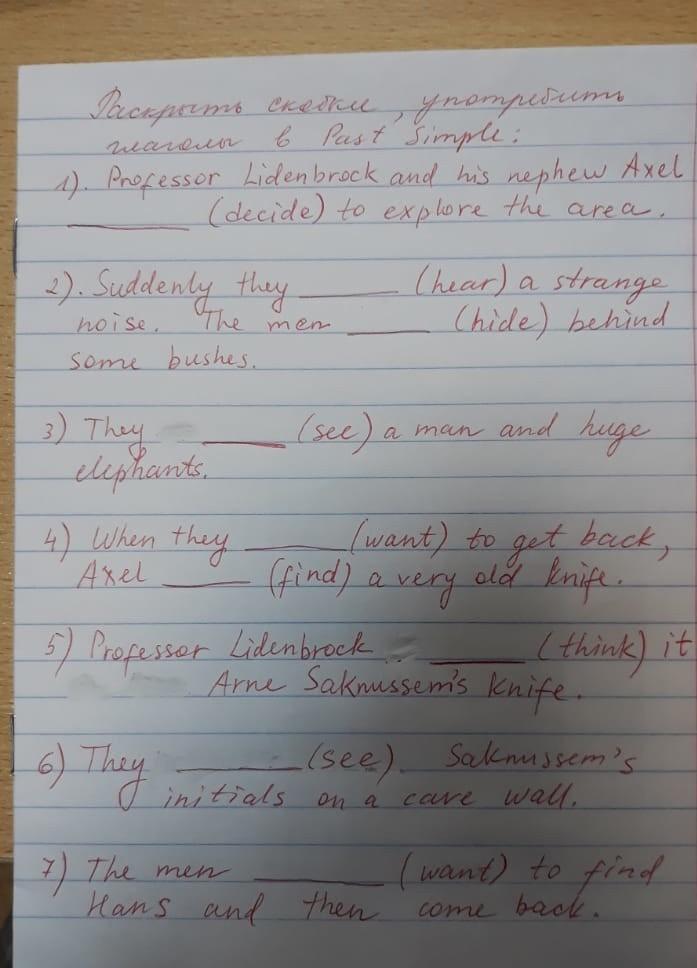 Раскрыть скобки, употребить
глаголы в Past Simple:
1). Professor Lidenbrock and his nephew Axel
______ (decide) to explore the area.
2). Suddenly they ______ (hear) a strange
noise. The men ______ (hide) behind
some bushes.
3) They ______ (see) a man and huge
elephants.
4) When they ______ (want) to get back,
Axel ______ (find) a very old knife.
5) Professor Lidenbrock ______ (think) it
Arne Saknussem's knife.
6) They ______ (see). Saknussem's
initials on a cave wall.
7) The men ______ (want) to find
Hans and then come back.